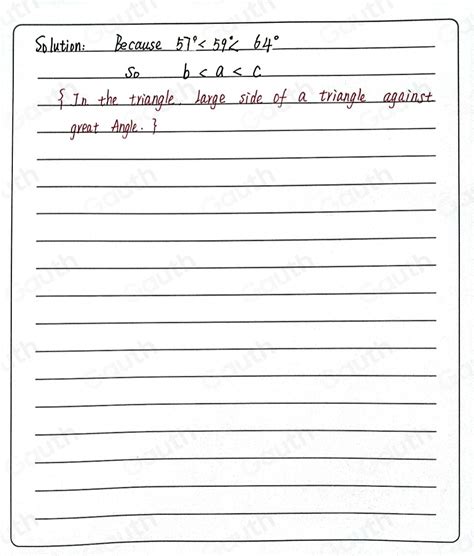 Solution: Because 57°< 59°< 64°
So b < a < c
{ In the triangle. Large side of a triangle against
great Angle. }